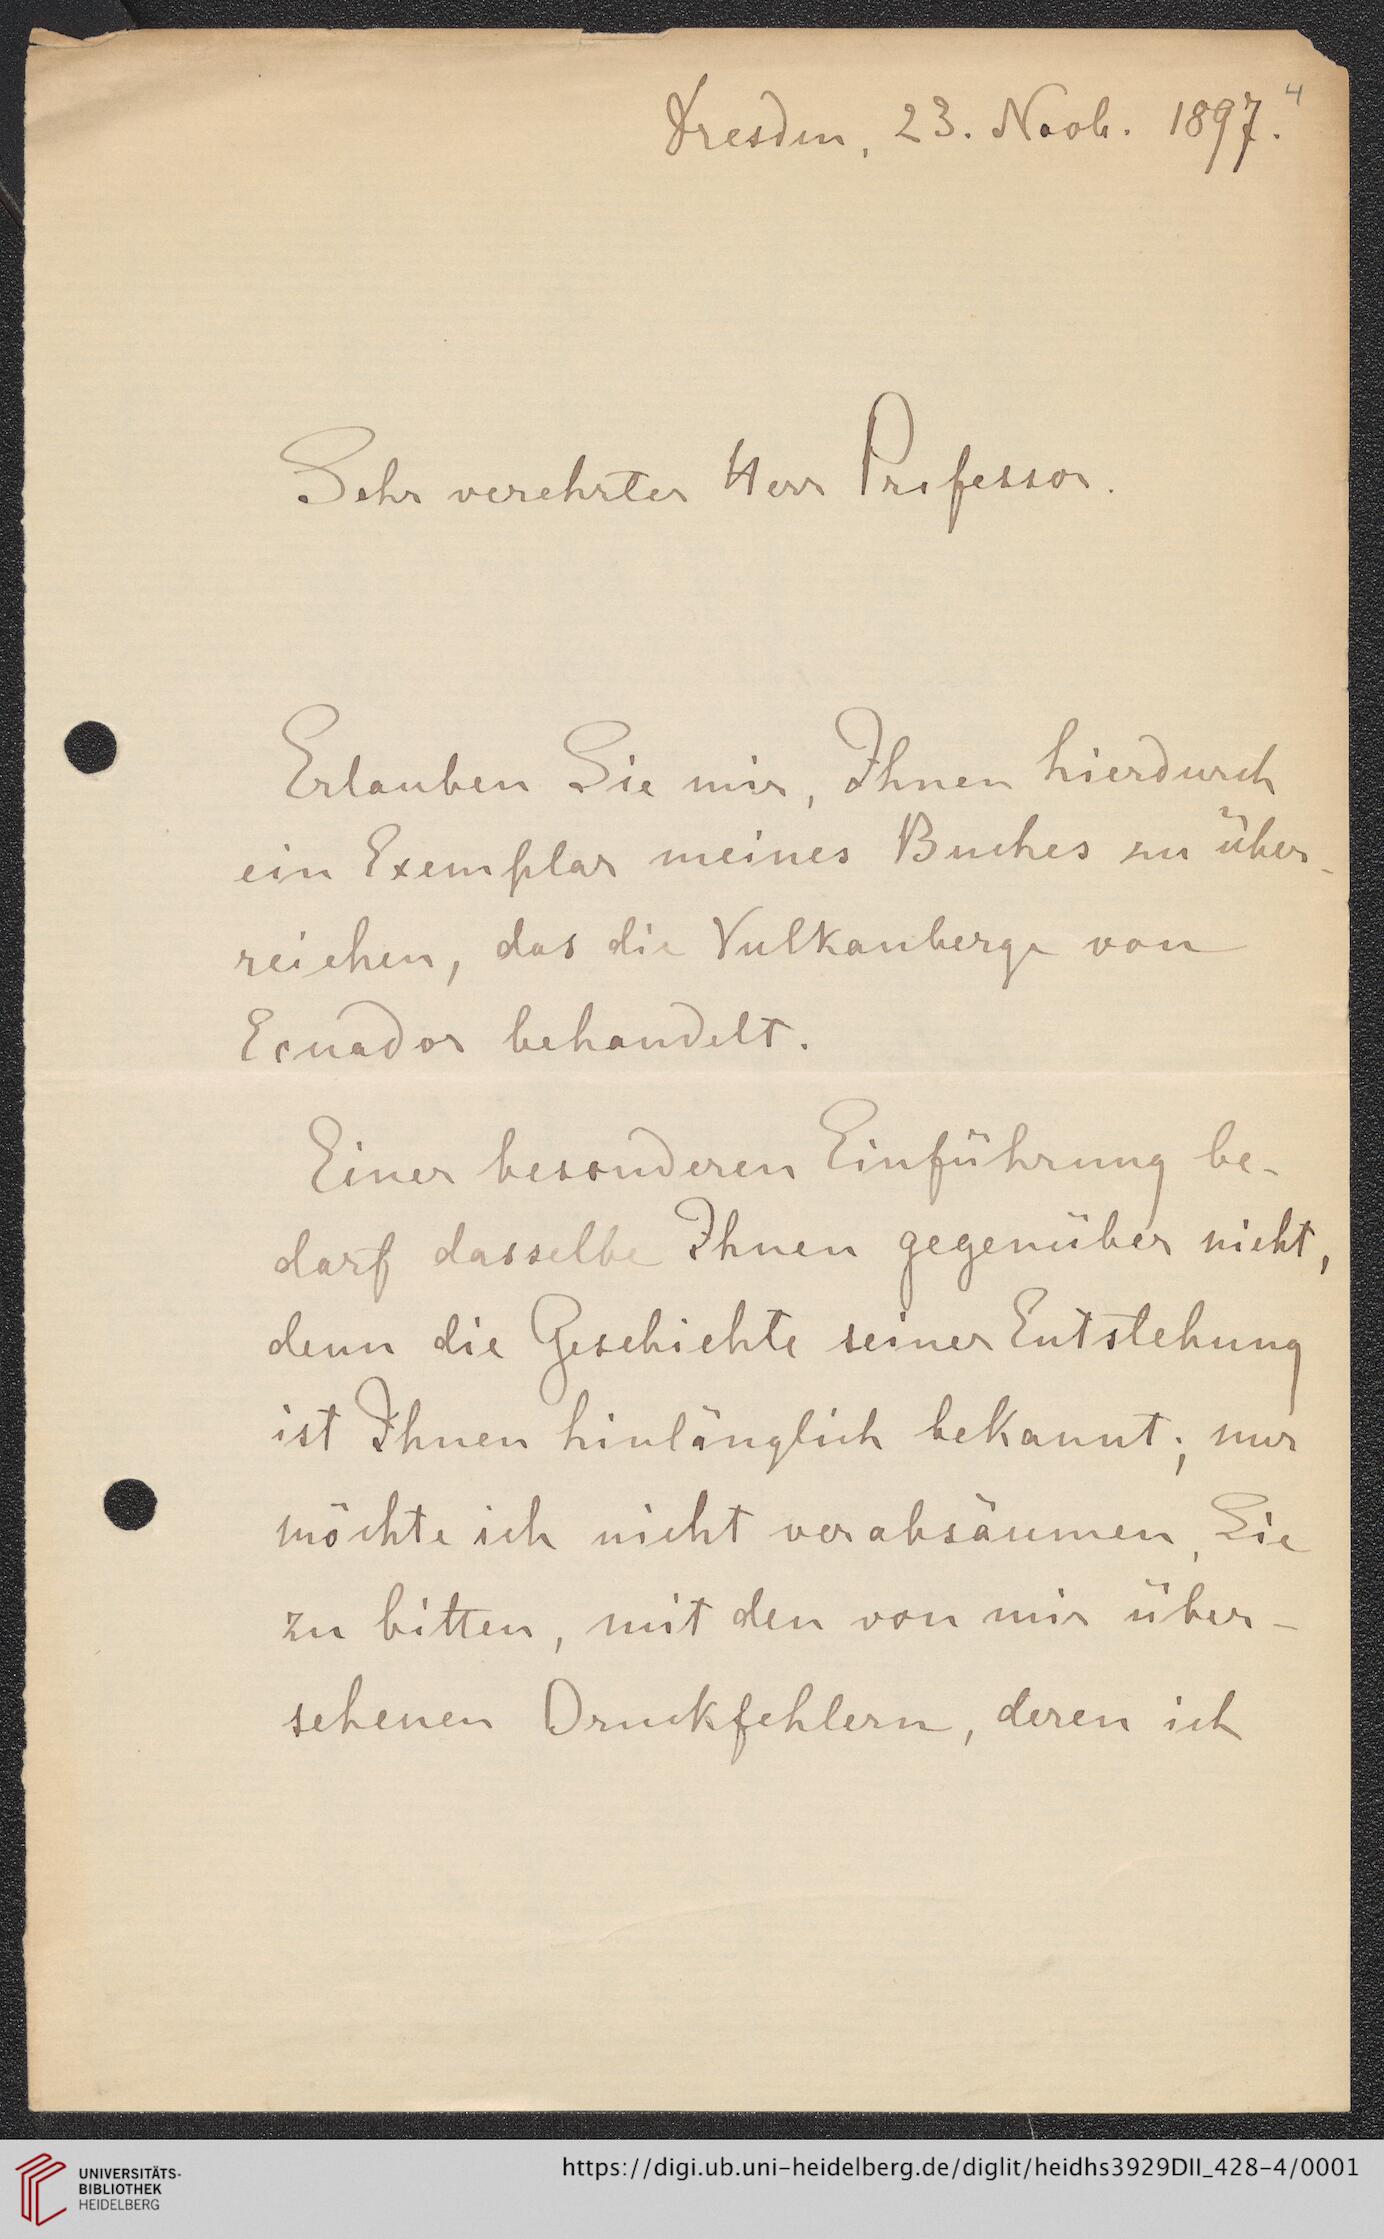 4
Dresden, 23. Novb. 1897.
Sehr verehrter Herr Professor.
Erlauben Sie mir, Ihnen hierdurch
ein Exemplar meines Buches zu über-
reichen, das die Vulkanberge von
Ecuador behandelt.
Einer besonderen Einführung be-
darf dasselbe Ihnen gegenüber nicht,
denn die Geschichte seiner Entstehung
ist Ihnen hinlänglich bekannt; nur
möchte ich nicht verabsäumen, Sie
zu bitten, mit den von mir über-
sehenen Druckfehlern, deren ich
UNIVERSITÄTS-
BIBLIOTHEK
HEIDELBERG
https://digi.ub.uni-heidelberg.de/diglit/heidhs3929DII_428-4/0001